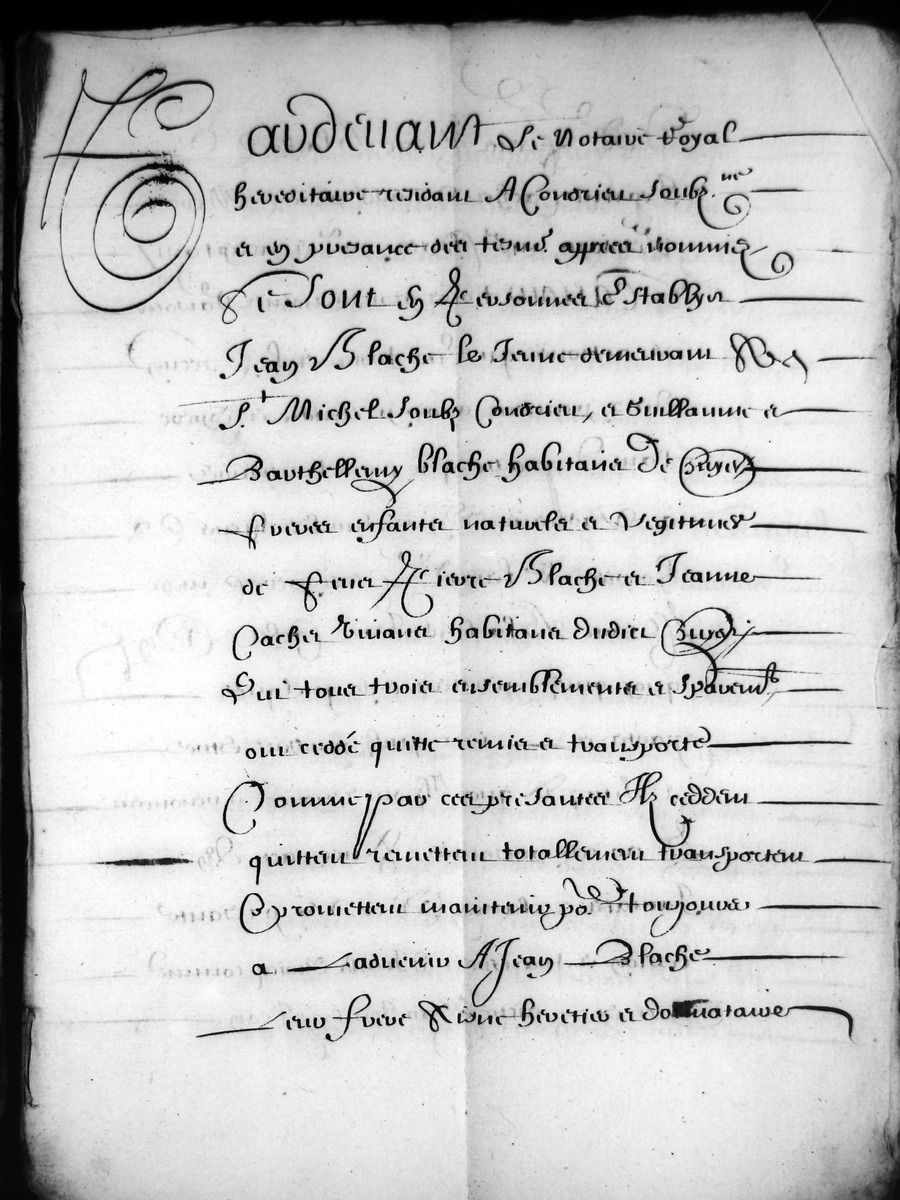 Pardevant Le Notaire Royal
hereditaire residant A Condrieu soubz.ne
et en presance des tesmo. appres nommez
Se Sont en Personnes Establys
Jean Blache le Jeune demeurant
St Michel Soubz Condrieu, et Guillaume et
Barthellemy blache habitans De
freres enfantes natureles et Legitimes
de feus Pierre Blache et Jeanne
Vivans habitans dudict
Qui tous trois ensemblementes et
ont ceddé quitté remis et transporté
Comme par ces presantes Ilz ceddent
quittent remettent totallement transportent
Et promettent maintenir po.r toujours
a Ladvenir A Jean Blache
Leur frere heretier et donnataire